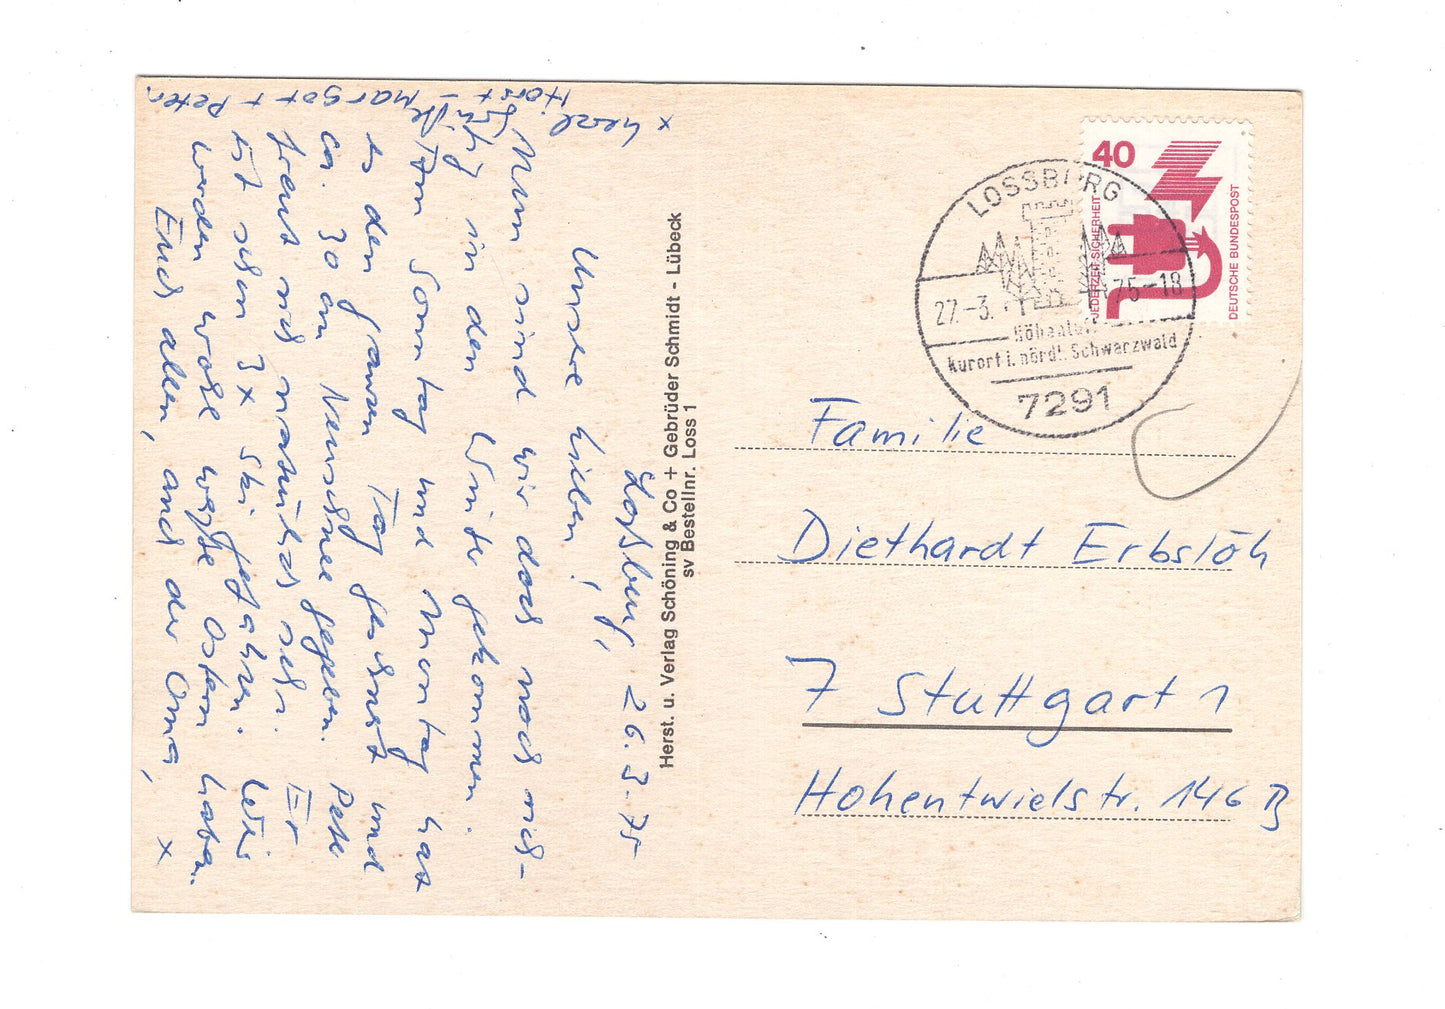 Loßburg, 26.3.75
Unsere lieben!
Nun sind wir doch noch rich-
tig in den Winter gekommen.
Den Sonntag und Montag hat
es den ganzen Tag geschneit und
ca. 30 cm Neuschnee gegeben. Peter
freut sich natürlich sehr. Er
ist schon 3x Ski gefahren. Wir
werden wohl weiße Ostern haben.
Euch allen, auch der Oma, x
x herzl. Grüße
Horst - Margot + Peter
Herst. u. Verlag Schöning & Co + Gebrüder Schmidt - Lübeck
sv Bestellnr. Loss 1
40
JEDERZEIT SICHERHEIT
DEUTSCHE BUNDESPOST
LOSSBURG
27.-3. 75-18
Höhenluft
kurort i. nördl. Schwarzwald
7291
Familie
Diethardt Erbslöh
7 Stuttgart 1
Hohentwielstr. 146 B